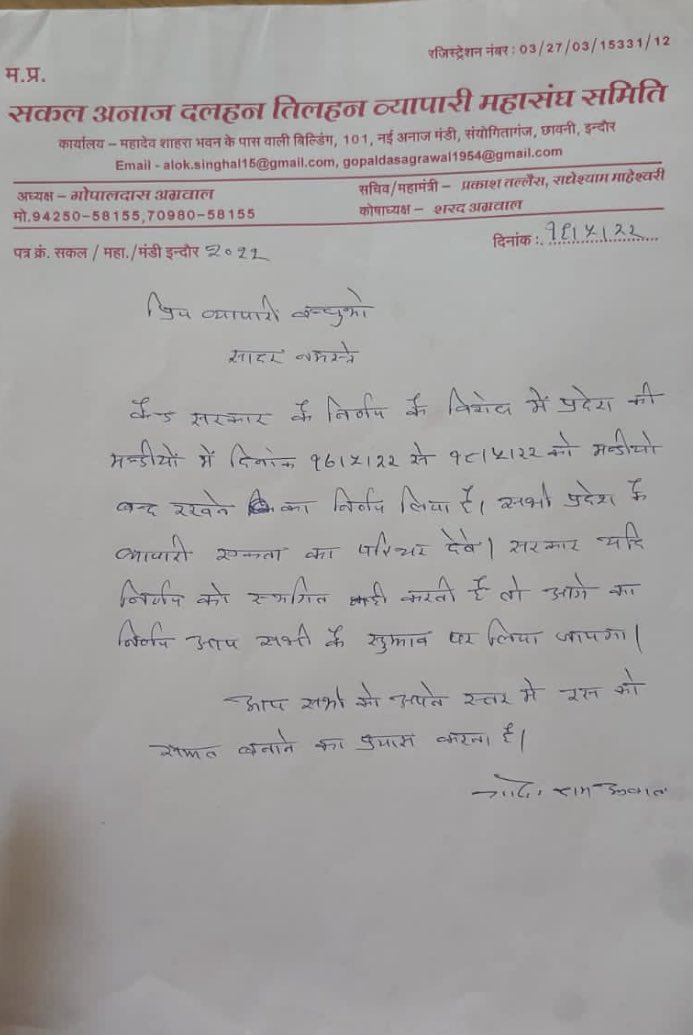 रजिस्ट्रेशन नंबर : 03/27/03/15331/12
म.प्र.
सकल अनाज दलहन तिलहन व्यापारी महासंघ समिति
कार्यालय – महादेव शाहरा भवन के पास वाली बिल्डिंग, 101, नई अनाज मंडी, संयोगितागंज, छावनी, इन्दौर
Email - alok.singhal15@gmail.com, gopaldasagrawal1954@gmail.com
अध्यक्ष – गोपालदास अग्रवाल
मो.94250-58155,70980-58155
सचिव/महामंत्री – प्रकाश तल्लैरा, राधेश्याम माहेश्वरी
कोषाध्यक्ष – शरद अग्रवाल
पत्र क्रं. सकल / महा./मंडी इन्दौर २०२२
दिनांक :
प्रिय व्यापारी बन्धुओ
सादर नमस्ते
सरकार के निर्णय के विरोध में प्रदेश की
मन्डीयों में दिनांक १६।५।२२ से १८।५।२२ को मन्डीयो
बन्द रखने का निर्णय लिया है। सभी प्रदेश के
व्यापारी एकता का परिचय देवे। सरकार यदि
निर्णय को स्थगित नही करती है तो आगे का
निर्णय आप सभी के सुझाव पर लिया जायगा।
आप सभी को अपने स्तर मे इस को
सफल बनाने का प्रयास करना है।